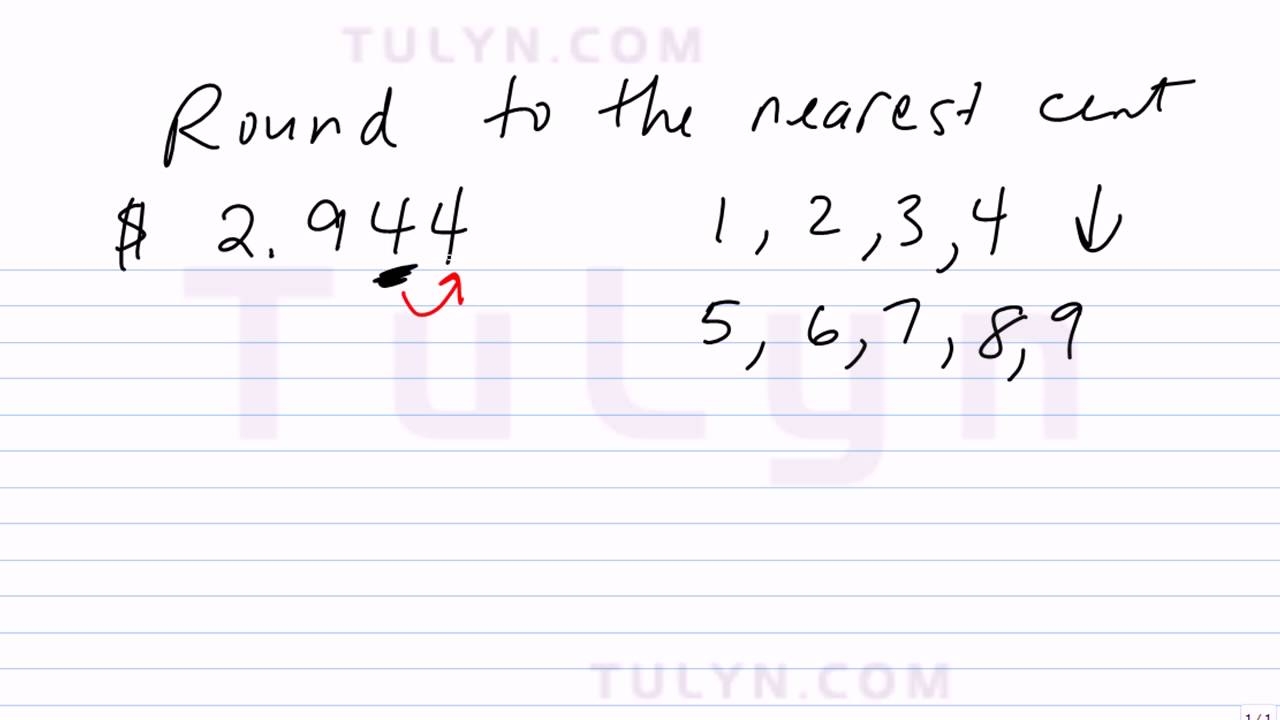 TULYN.COM
Round to the nearest cent
$ 2.944 1, 2, 3, 4 ↓
5, 6, 7, 8, 9
TuLyn
TULYN.COM
1/1